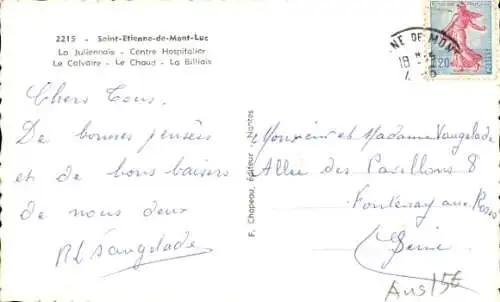 2215 - Saint-Etienne-de-Mont-Luc
La Juliennais - Centre Hospitalier
Le Calvaire - Le Chaud - La Billiais
NE DE MONT
18
0,20
Chers Tous.
De bonnes pensées
et de bons baisers
de nous deux
F. Chapeau, Éditeur - Nantes
Monsieur et Madame Vaugelade
Allée des Pavillons 8
Fontenay aux Roses
Seine
15€